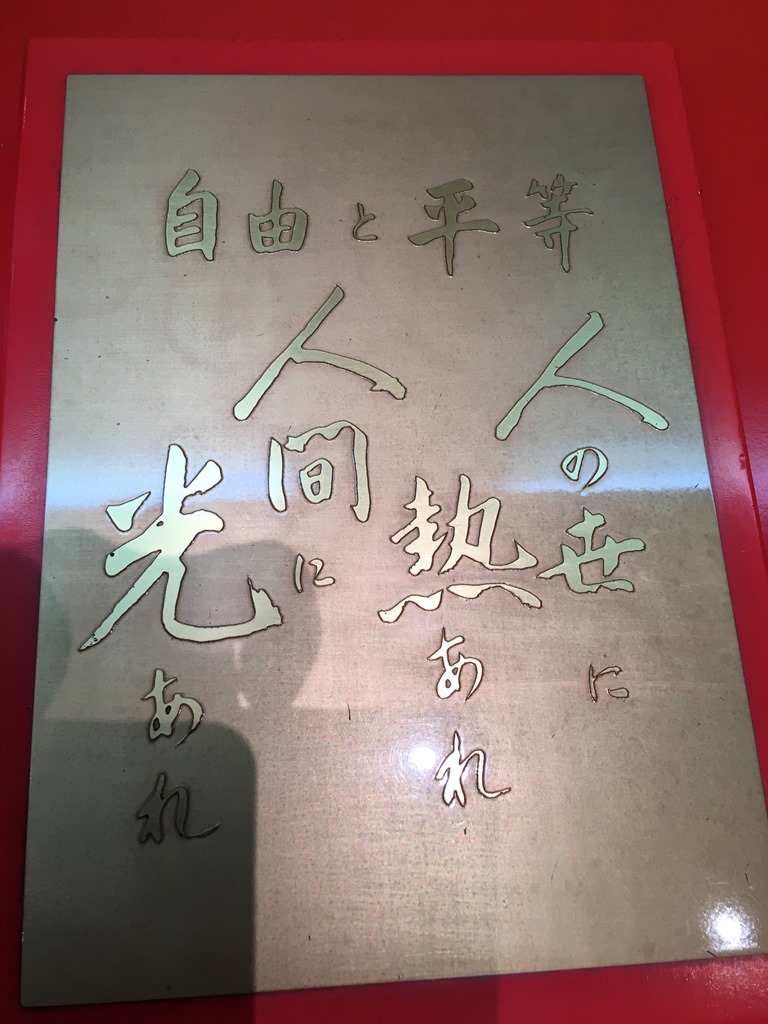 自由と平等
人の世に
熱あれ
人間に
光あれ